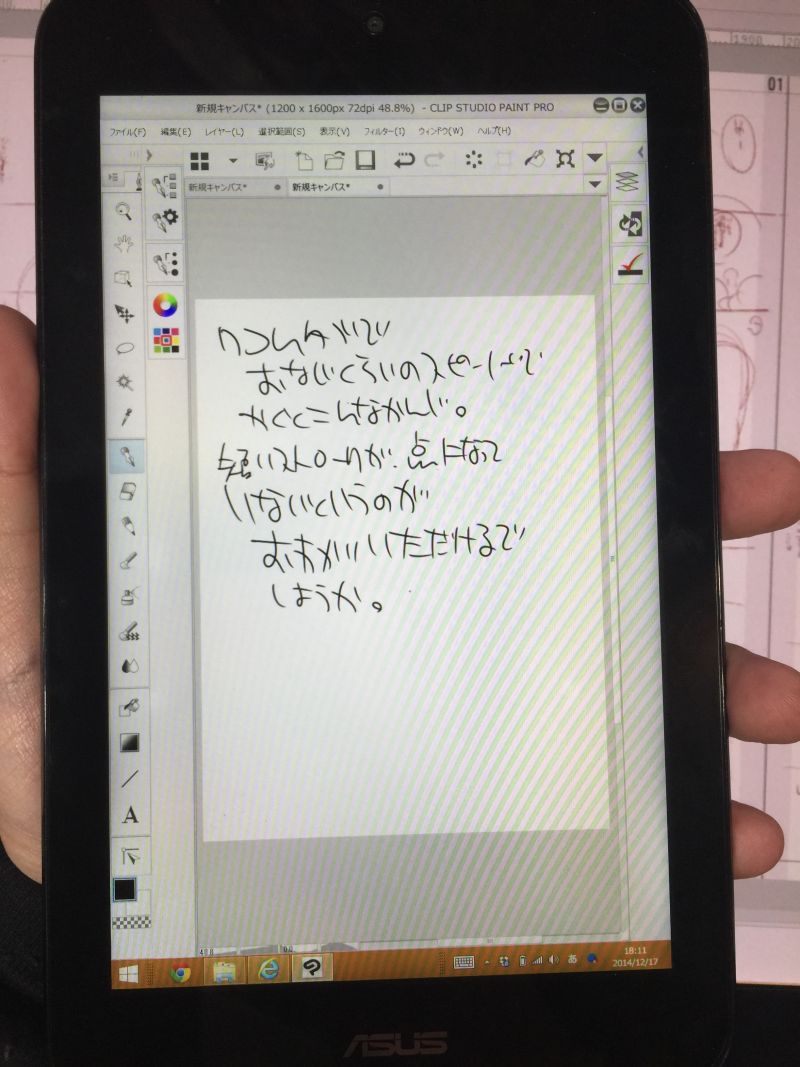 01
新規キャンバス* (1200 x 1600px 72dpi 48.8%) - CLIP STUDIO PAINT PRO
ファイル(F) 編集(E) レイヤー(L) 選択範囲(S) 表示(V) フィルター(I) ウィンドウ(W) ヘルプ(H)
新規キャンバス* 新規キャンバス*
おなじくらいのスピードで
かくとこんなかんじ。
短いストロークが、点になって
いないというのが
おわかりいただけるで
しょうか。
A
48.8 0.0
あ 18:11
2014/12/17
ASUS